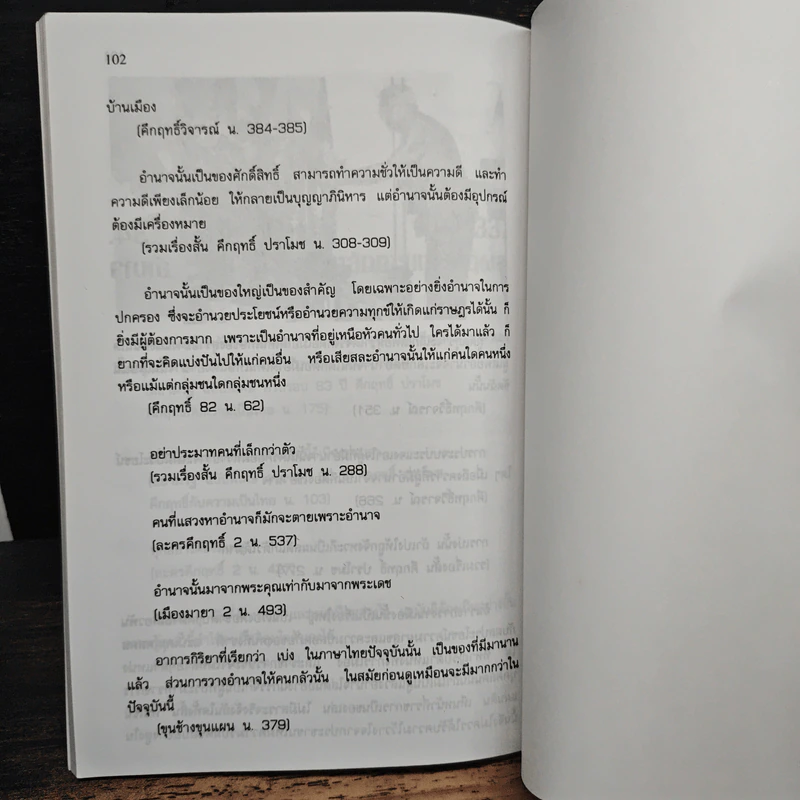 102
บ้านเมือง
(คึกฤทธิ์วิจารณ์ น. 384-385)
อำนาจนั้นเป็นของศักดิ์สิทธิ์ สามารถทำความชั่วให้เป็นความดี และทำ
ความดีเพียงเล็กน้อย ให้กลายเป็นบุญญาภินิหาร แต่อำนาจนั้นต้องมีอุปกรณ์
ต้องมีเครื่องหมาย
(รวมเรื่องสั้น คึกฤทธิ์ ปราโมช น. 308-309)
อำนาจนั้นเป็นของใหญ่เป็นของสำคัญ โดยเฉพาะอย่างยิ่งอำนาจในการ
ปกครอง ซึ่งจะอำนวยประโยชน์หรืออำนวยความทุกข์ให้เกิดแก่ราษฎรได้นั้น ก็
ยิ่งมีผู้ต้องการมาก เพราะเป็นอำนาจที่อยู่เหนือหัวคนทั่วไป ใครได้มาแล้ว ก็
ยากที่จะคิดแบ่งปันไปให้แก่คนอื่น หรือเสียสละอำนาจนั้นให้แก่คนใดคนหนึ่ง
หรือแม้แต่กลุ่มชนใดกลุ่มชนหนึ่ง
(คึกฤทธิ์ 82 น. 62)
อย่าประมาทคนที่เล็กกว่าตัว
(รวมเรื่องสั้น คึกฤทธิ์ ปราโมช น. 288)
คนที่แสวงหาอำนาจก็มักจะตายเพราะอำนาจ
(ละครคึกฤทธิ์ 2 น. 537)
อำนาจนั้นมาจากพระคุณเท่ากับมาจากพระเดช
(เมืองมายา 2 น. 493)
อาการกิริยาที่เรียกว่า เบ่ง ในภาษาไทยปัจจุบันนั้น เป็นของที่มีมานาน
แล้ว ส่วนการวางอำนาจให้คนกลัวนั้น ในสมัยก่อนดูเหมือนจะมีมากกว่าใน
ปัจจุบันนี้
(ขุนช้างขุนแผน น. 379)